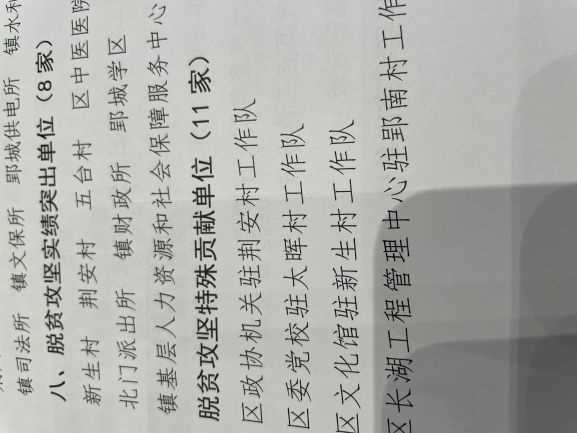 镇司法所 镇文保所 郢城供电所 镇水利
八、脱贫攻坚实绩突出单位（8家）
新生村 荆安村 五台村 区中医医院
北门派出所 镇财政所 郢城学区
镇基层人力资源和社会保障服务中心
脱贫攻坚特殊贡献单位（11家）
区政协机关驻荆安村工作队
区委党校驻太晖村工作队
区文化馆驻新生村工作队
区长湖工程管理中心驻郢南村工作